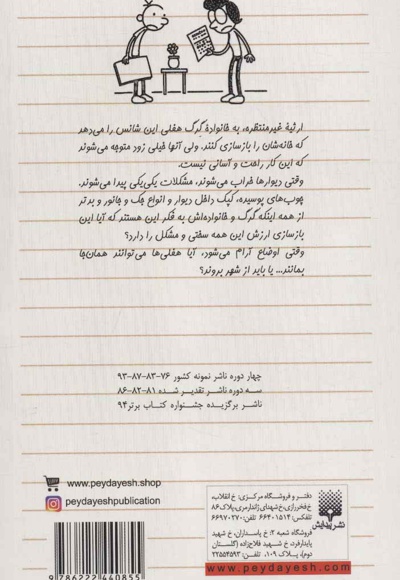 ارثیهٔ غیرمنتظره، به خانوادهٔ گرگ هفلی این شانس را می‌دهد
که خانه‌شان را بازسازی کنند. ولی آنها خیلی زود متوجه می‌شوند
که این کار راحت و آسانی نیست.
وقتی دیوارها خراب می‌شوند، مشکلات یکی‌یکی پیدا می‌شوند.
چوب‌های پوسیده، کپک داخل دیوار و انواع جک و جانور و بدتر
از همه اینکه گرگ و خانواده‌اش به فکر این هستند که آیا این
بازسازی ارزش این همه سختی و مشکل را دارد؟
وقتی اوضاع آرام می‌شود، آیا هفلی‌ها می‌توانند همان‌جا
بمانند... یا باید از شهر بروند؟
چهار دوره ناشر نمونه کشور ۷۶-۸۳-۸۷-۹۳
سه دوره ناشر تقدیر شده ۸۱-۸۲-۸۶
ناشر برگزیده جشنواره کتاب برتر ۹۴
www.peydayesh.shop
peydayeshpublication
نشر پیدایش
دفتر و فروشگاه مرکزی: خ انقلاب،
خ فخررازی، خ شهدای ژاندارمری، پلاک ۸۶
تلفکس: ۶۶۴۰۱۵۱۴ تلفن: ۶۶۹۷۰۲۷۰
فروشگاه شعبه ۲: خ پاسداران، خ شهید
پایدارفرد، خ شهید فلاح‌زاده (گلستان
دوم)، پلاک ۱۰۹، تلفن: ۲۲۵۵۴۵۹۳
www.peydayesh.com
9 786222 440855